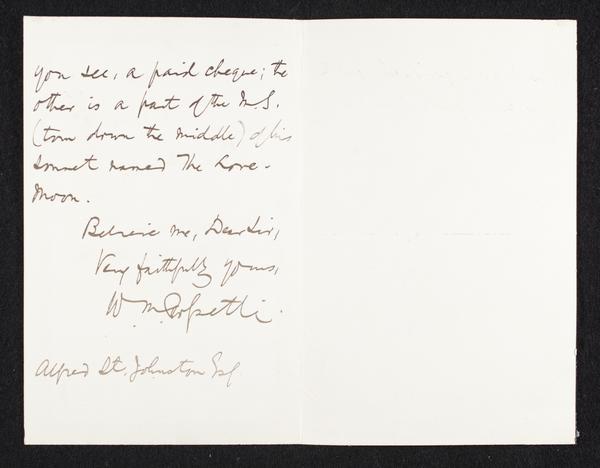 you see, a paid cheque; the
other is a part of the M.S.
(torn down the middle) of his
sonnet named The Love-
Moon.
Believe me, Dear Sir,
Very faithfully yours,
W. M. Rossetti.
Alfred St. Johnston Esq